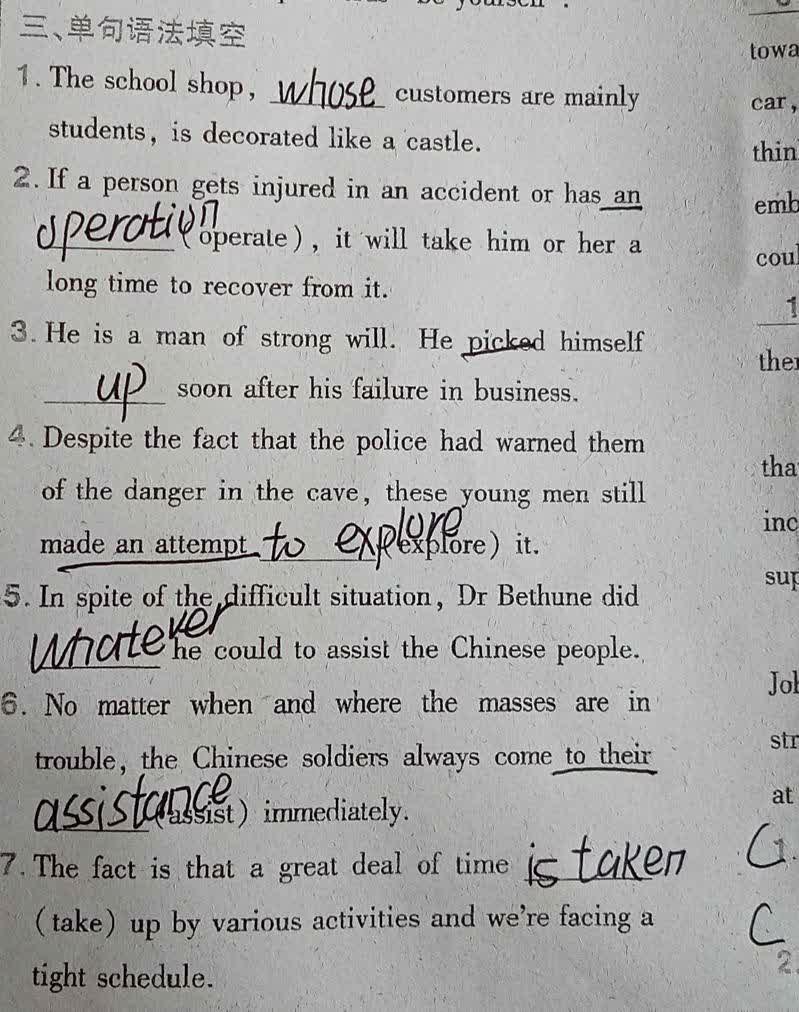 be yourself".
三、单句语法填空
1. The school shop, whose customers are mainly
students, is decorated like a castle.
2. If a person gets injured in an accident or has an
operation (operate), it will take him or her a
long time to recover from it.
3. He is a man of strong will. He picked himself
up soon after his failure in business.
4. Despite the fact that the police had warned them
of the danger in the cave, these young men still
made an attempt to explore (explore) it.
5. In spite of the difficult situation, Dr Bethune did
whatever he could to assist the Chinese people.
6. No matter when and where the masses are in
trouble, the Chinese soldiers always come to their
assistance (assist) immediately.
7. The fact is that a great deal of time is taken
(take) up by various activities and we're facing a
tight schedule.
towa
car,
thin
emb
coul
1
ther
tha
inc
sup
Joh
str
at
C 1.
C
2.